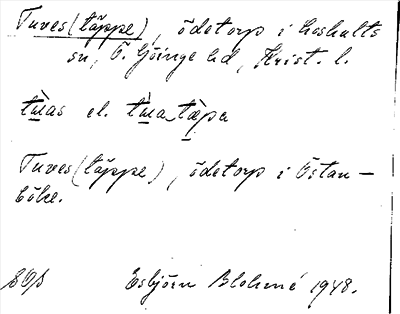 Tuves (täppe), ödetorp i Loshults
sn, Ö. Göinge hd, Krist. l.
tɯas el. tɯa tæpa
Tuves (täppe), ödetorp i Östan-
böke.
Esbjörn Blohmé 1948.